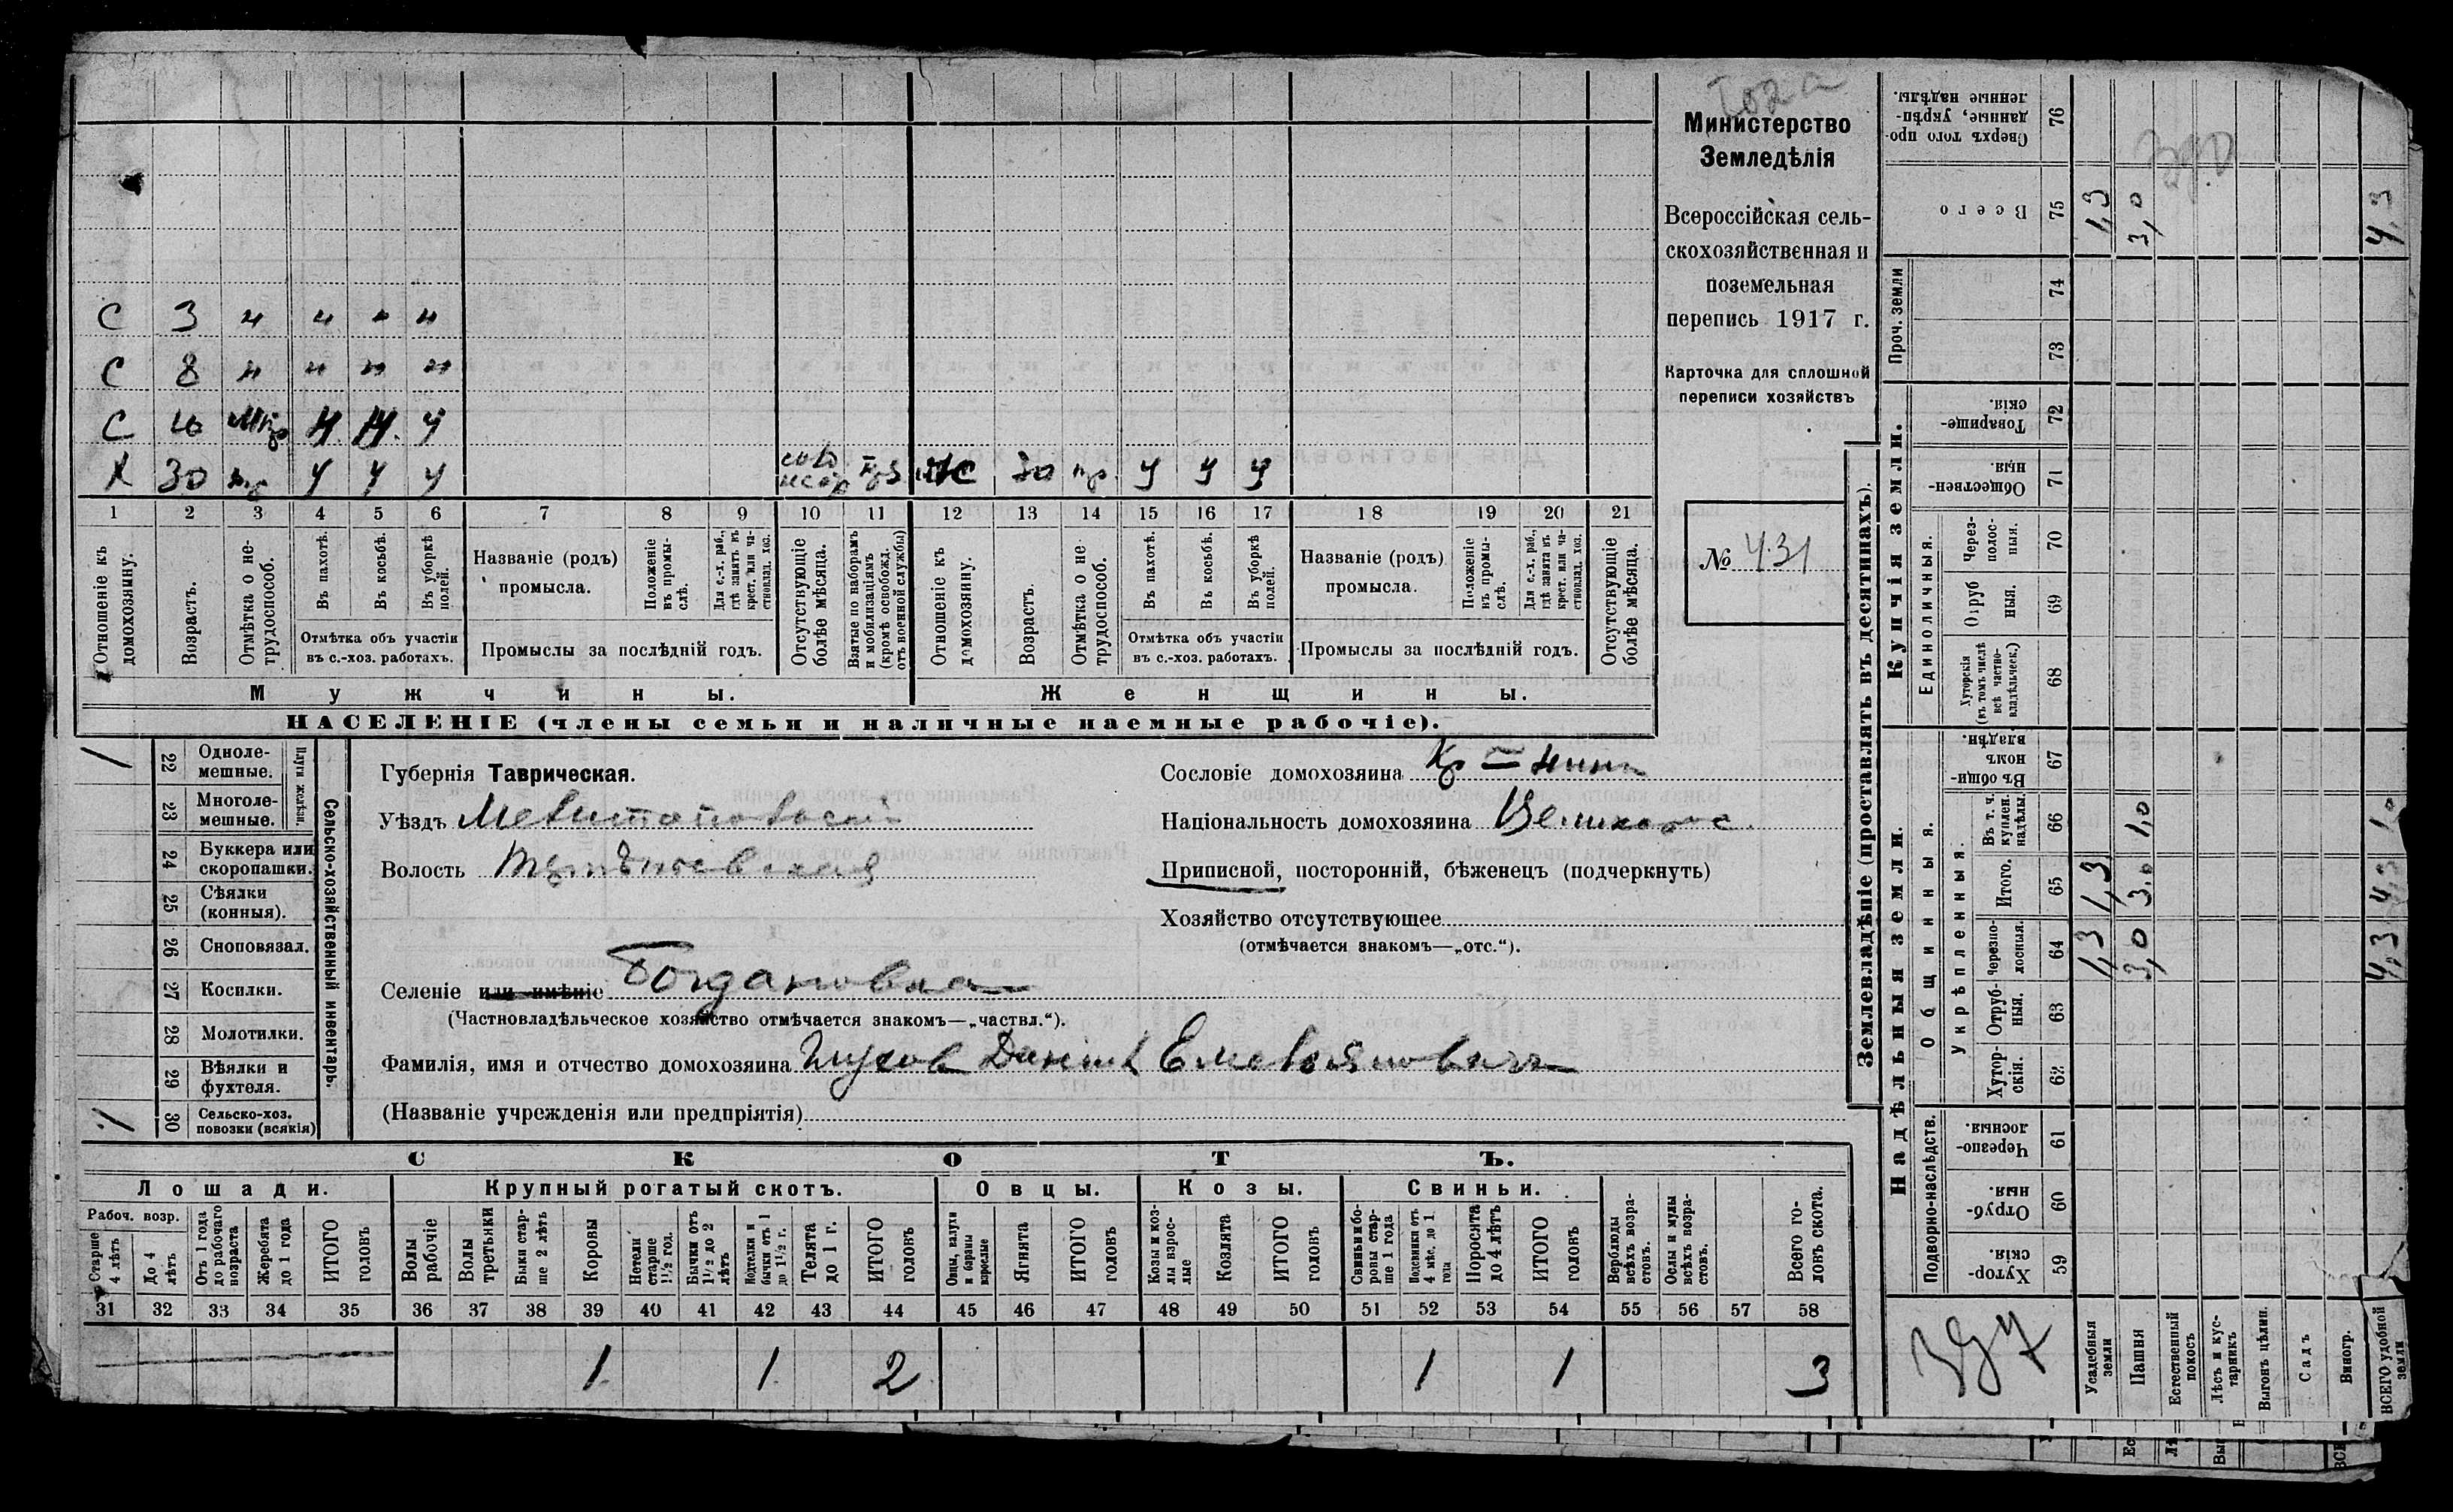 Министерство
Земледѣлія
Всероссійская сель-
скохозяйственная и
поземельная
перепись 1917 г.
Карточка для сплошной
переписи хозяйствъ
№ 431
С 3 " " " "
С 8 " " " "
С 10 Н. Н. У
Х 30 У У У 30 У У У
1 2 3 4 5 6 7 8 9 10 11 12 13 14 15 16 17 18 19 20 21
Отношеніе къ домохозяину.
Возрастъ.
Отмѣтка о не-трудоспособ.
Въ пахотѣ.
Въ косьбѣ.
Въ уборкѣ полей.
Отмѣтка объ участіи
въ с.-хоз. работахъ.
Названіе (родъ)
промысла.
Положеніе въ промы-слѣ.
Для с.-х. раб., гдѣ занятъ въ крест. или ча-стновлад. хоз.
Промыслы за послѣдній годъ.
Отсутствующіе болѣе мѣсяца.
Взятые по наборамъ и мобилизаціямъ (кромѣ освобожд. отъ военной службы)
Отношеніе къ домохозяину.
Возрастъ.
Отмѣтка о не трудоспособ.
Въ пахотѣ.
Въ косьбѣ.
Въ уборкѣ полей.
Отмѣтка объ участіи
въ с.-хоз. работахъ.
Названіе (родъ)
промысла.
Положеніе въ промы-слѣ.
Для с.-х. раб., гдѣ занята въ крест. или ча-стновлад. хоз.
Промыслы за послѣдній годъ.
Отсутствующіе болѣе мѣсяца.
Мужчины. Женщины.
НАСЕЛЕНІЕ (члены семьи и наличные наемные рабочіе).
Сельско-хозяйственный инвентарь.
Плуги желѣзн.
/ 22 Одноле-мешные.
23 Многоле-мешные.
24 Буккера или скоропашки.
25 Сѣялки (конныя).
26 Сноповязал.
27 Косилки.
28 Молотилки.
29 Вѣялки и фухтеля.
30 Сельско-хоз. повозки (всякія)
Губернія Таврическая.
Уѣздъ Мелитопольскій
Волость
Селеніе или имѣніе Богдановка
(Частновладѣльческое хозяйство отмѣчается знакомъ—„частвл.“).
Фамилія, имя и отчество домохозяина Данiилъ Емельяновичъ
(Названіе учрежденія или предпріятія)
Сословіе домохозяина
Національность домохозяина Великоросс.
Приписной, посторонній, бѣженецъ (подчеркнуть)
Хозяйство отсутствующее
(отмѣчается знакомъ—„отс.“).
СКОТЪ.
Лошади. Крупный рогатый скотъ. Овцы. Козы. Свиньи.
Рабоч. возр.
Старше 4 лѣтъ
До 4 лѣтъ
Отъ 1 года до рабочаго возраста
Жеребята до 1 года
ИТОГО головъ
Волы рабочіе
Волы третьяки
Быки стар-ше 2 лѣтъ
Коровы
Нетели старше 1½ год.
Бычки отъ 1½ до 2 лѣтъ
Подтелки и бычки отъ 1 до 1½ г.
Телята до 1 г.
ИТОГО головъ
Овцы, валухи и бараны взрослые
Ягнята
ИТОГО головъ
Козы и коз-лы взрос-лые
Козлята
ИТОГО головъ
Свиньи и бо-ровы стар-ше 1 года
Подсвинки отъ 4 мѣс. до 1 года
Поросята до 4 лѣтъ
ИТОГО головъ
Верблюды всѣхъ возра-стовъ.
Ослы и мулы всѣхъ возра-стовъ.
Всего го-ловъ скота.
31 32 33 34 35 36 37 38 39 40 41 42 43 44 45 46 47 48 49 50 51 52 53 54 55 56 57 58
1 1 2 1 1 3
Землевладѣніе (проставлять въ десятинахъ).
Купчія земли.
Надѣльныя земли.
Сверхъ того про-данные, укрѣп-ленные надѣлы. 76
Всего 75 1,3 3,0 4,3
Проч. земли 74 73
Товарище-скія. 72
Обществен-ныя. 71
Единоличныя.
Через-полос-ныя. 70
Отруб ныя. 69
Хуторскія (въ томъ числѣ всѣ частно-владѣльческ.) 68
Въ общин-номъ владѣн. 67
Общинныя.
Укрѣпленныя.
Въ т. ч. куплен. надѣлы. 66 1,0 1,0
Итого. 65 1,3 3,0 4,3
Черезпо-лосныя. 64 1,3 3,0 4,3
Отруб-ныя. 63
Хутор-скія. 62
Подворно-наслѣдств.
Черезпо-лосныя. 61
Отруб-ныя. 60
Хутор-скія. 59
Усадебныя земли
Пашня
Естественный покосъ
Лѣсъ и кус-тарникъ
Выгонъ цѣлин.
Садъ
Виногр.
ВСЕГО удобной земли